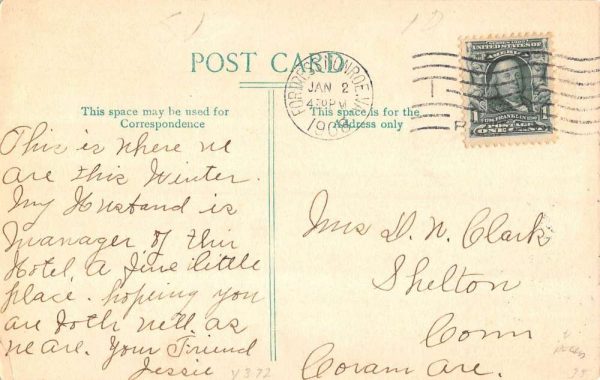 POST CARD
This space may be used for
Correspondence
This space is for the
Address only
FORTRESS MONROE, VA.
JAN 2
1908
UNITED STATES OF AMERICA
1
FRANKLIN
POSTAGE
ONE CENT
This is where we
are this Winter.
My Husband is
manager of this
Hotel, a fine little
place. hoping you
are both well. as
we are. Your Friend
Jessie
Y372
Mrs D. N. Clark
Shelton
Conn
Coram Ave.